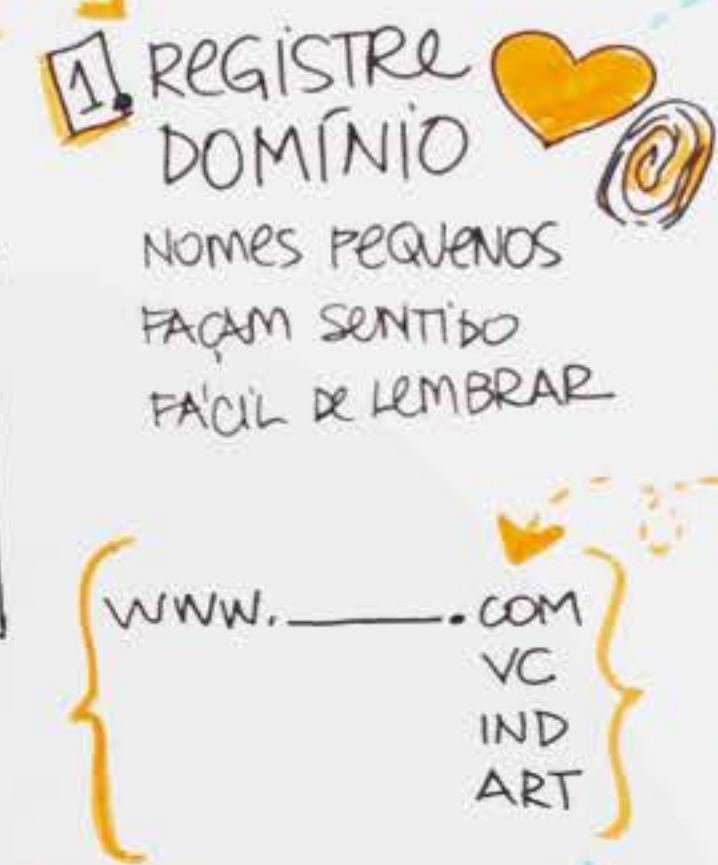 1. REGISTRE
DOMÍNIO
NOMES PEQUENOS
FAÇAM SENTIDO
FÁCIL DE LEMBRAR
WWW.______.COM
VC
IND
ART